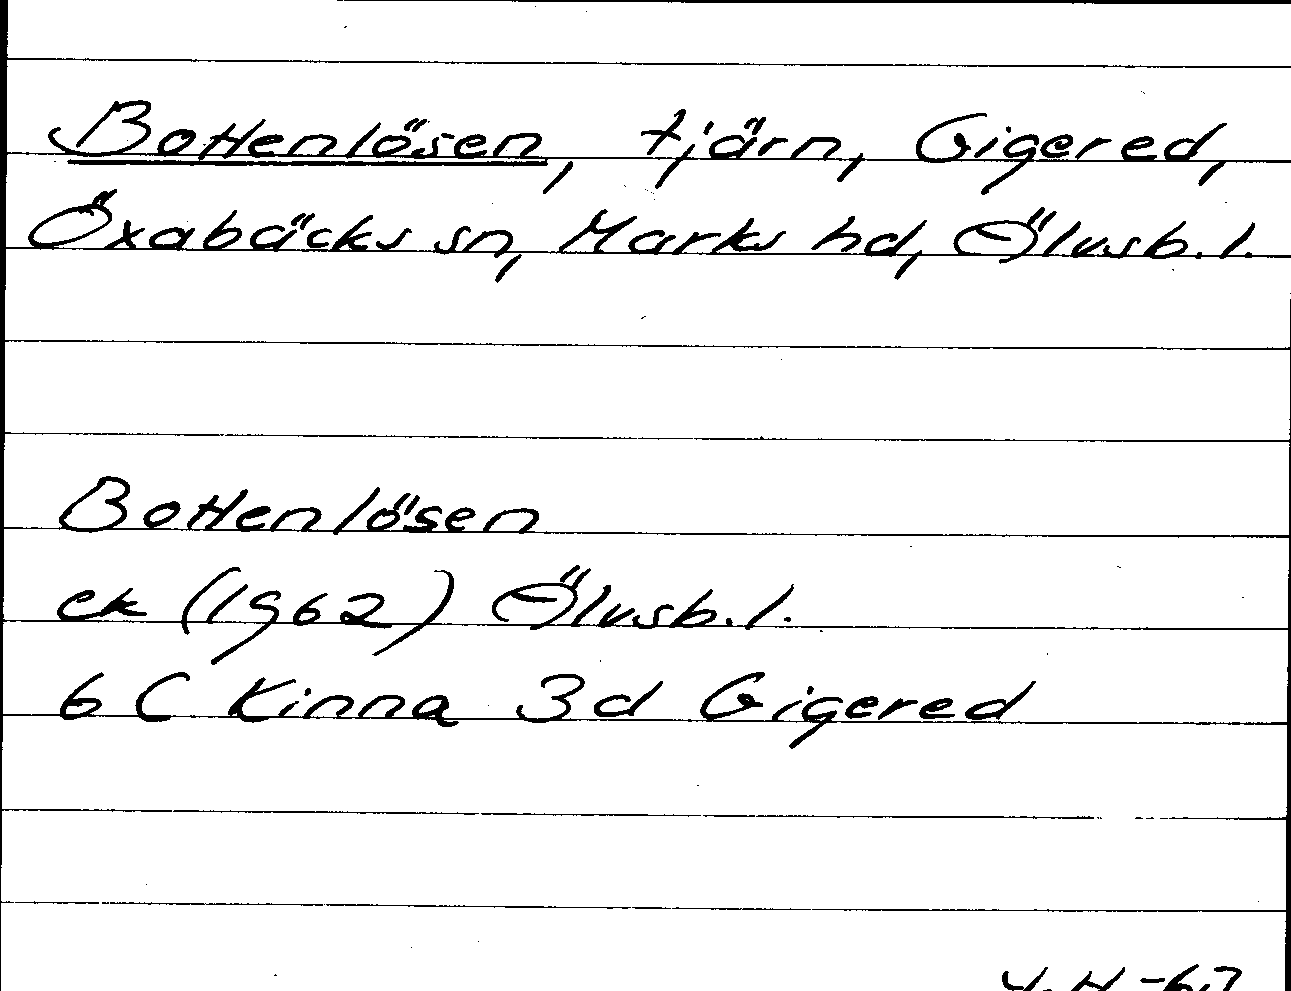 Bottenlösen, tjärn, Gigered,
Öxabäcks sn, Marks hd, Älvsb. l.
Bottenlösen
ek (1962) Älvsb. l.
6 C Kinna 3d Gigered